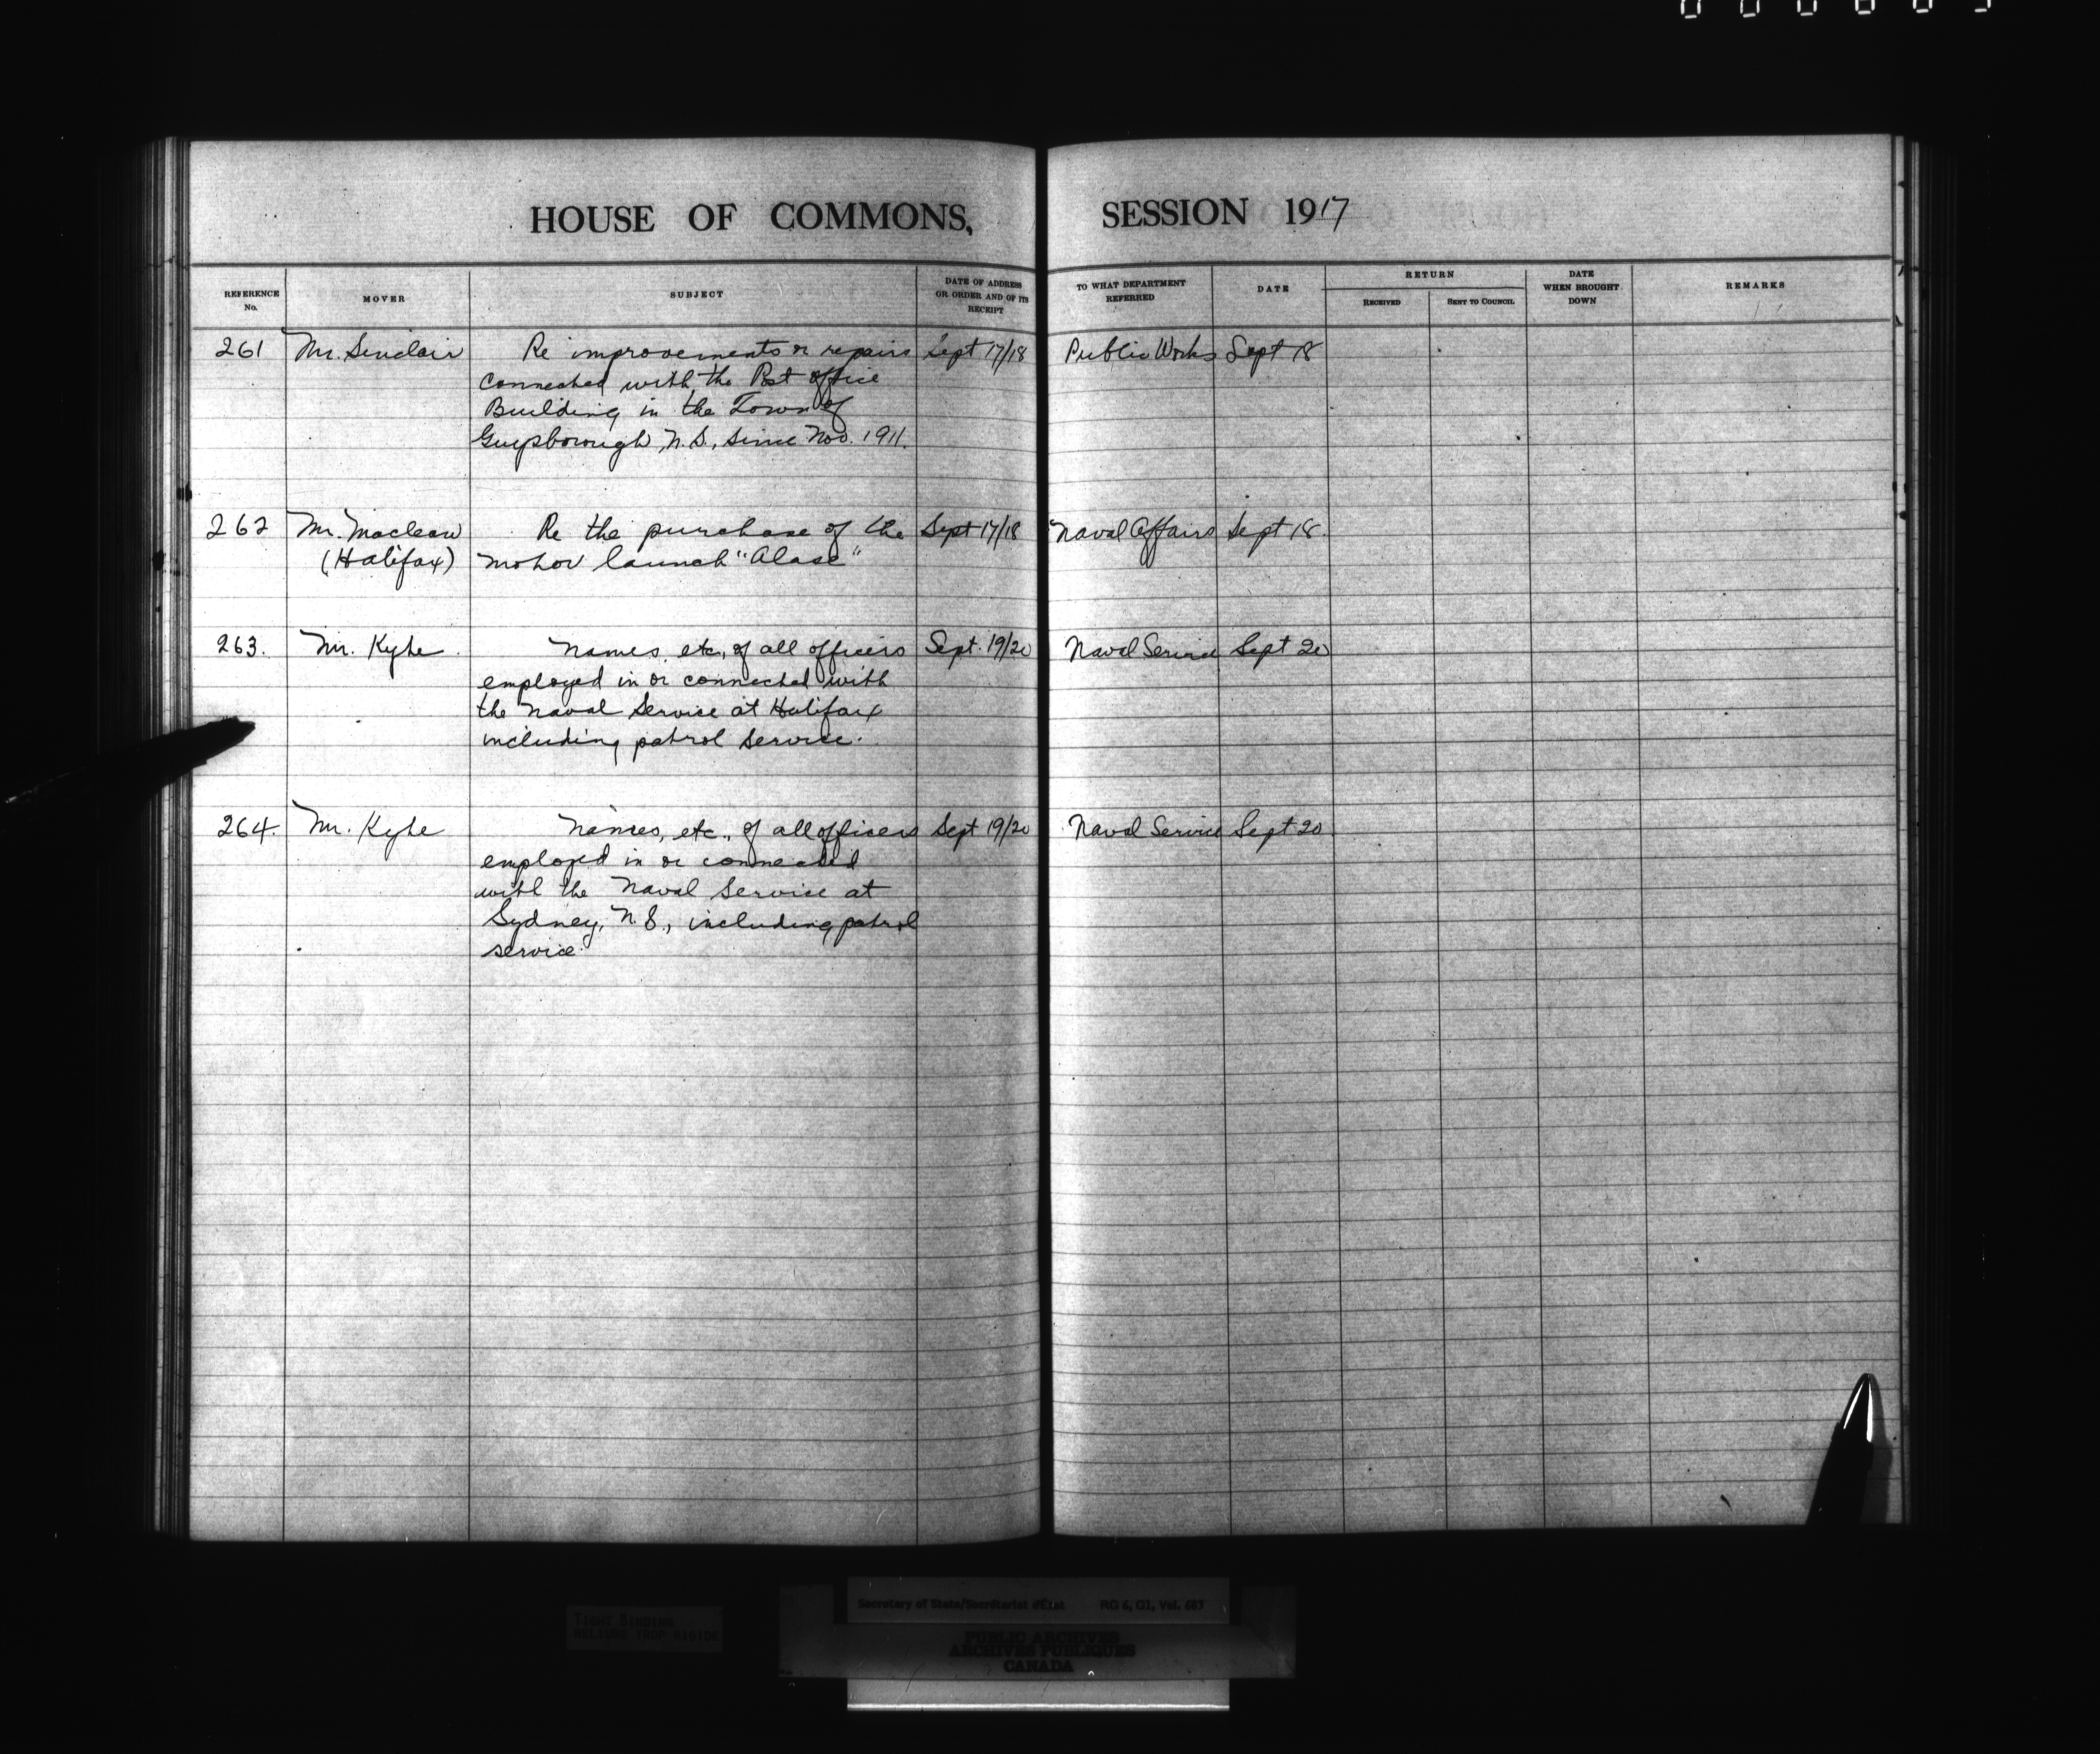 HOUSE OF COMMONS, SESSION 1917
REFERENCE No.
MOVER
SUBJECT
DATE OF ADDRESS OR ORDER AND OF ITS RECEIPT
TO WHAT DEPARTMENT REFERRED
DATE
RETURN
RECEIVED
SENT TO COUNCIL
DATE WHEN BROUGHT DOWN
REMARKS
261 Mr. Sinclair Re improvements or repairs Sept 17/18 Public Works Sept 18
connected with the Post office
Building in the Town of
Guysborough, N.S., since Nov. 1911.
262 Mr. Maclean Re the purchase of the Sept 17/18 Naval Affairs Sept 18.
(Halifax) motor launch "Alase"
263. Mr. Kyte Names, etc, of all officers Sept. 19/20 Naval Service Sept 20
employed in or connected with
the Naval Service at Halifax
including patrol service.
264. Mr. Kyte Names, etc., of all officers Sept 19/20 Naval Service Sept 20
employed in or connected
with the Naval Service at
Sydney, N.S., including patrol
service.
TIGHT BINDING
RELIURE TROP RIGIDE
Secretary of State/Secrétariat d'État RG 6, G1, Vol. 683
PUBLIC ARCHIVES
ARCHIVES PUBLIQUES
CANADA